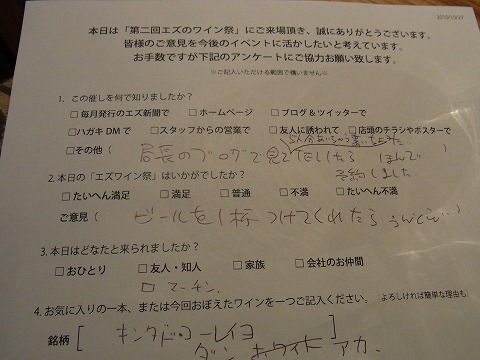 2010/10/27
本日は「第二回エズのワイン祭」にご来場頂き、誠にありがとうございます。
皆様のご意見を今後のイベントに活かしたいと考えています。
お手数ですが下記のアンケートにご協力お願い致します。
※ご記入いただける範囲で構いません※
1. この催しを何で知りましたか？
□毎月発行のエズ新聞で □ホームページ □ブログ＆ツイッターで
□ハガキDMで □スタッフからの営業で □友人に誘われて □店頭のチラシやポスターで
□その他（ 局長のブログで見て
予約しました
2. 本日の「エズワイン祭」はいかがでしたか？
□たいへん満足 □満足 □普通 □不満 □たいへん不満
ご意見（ ビールを1杯つけてくれたら
3. 本日はどなたと来られましたか？
□おひとり □友人・知人 □家族 □会社のお仲間
□マーチン.
4. お気に入りの一本、または今回おぼえたワインを一つご記入ください。（よろしければ簡単な理由も）
銘柄 [ キンタドローレイヨ ]
アカ.